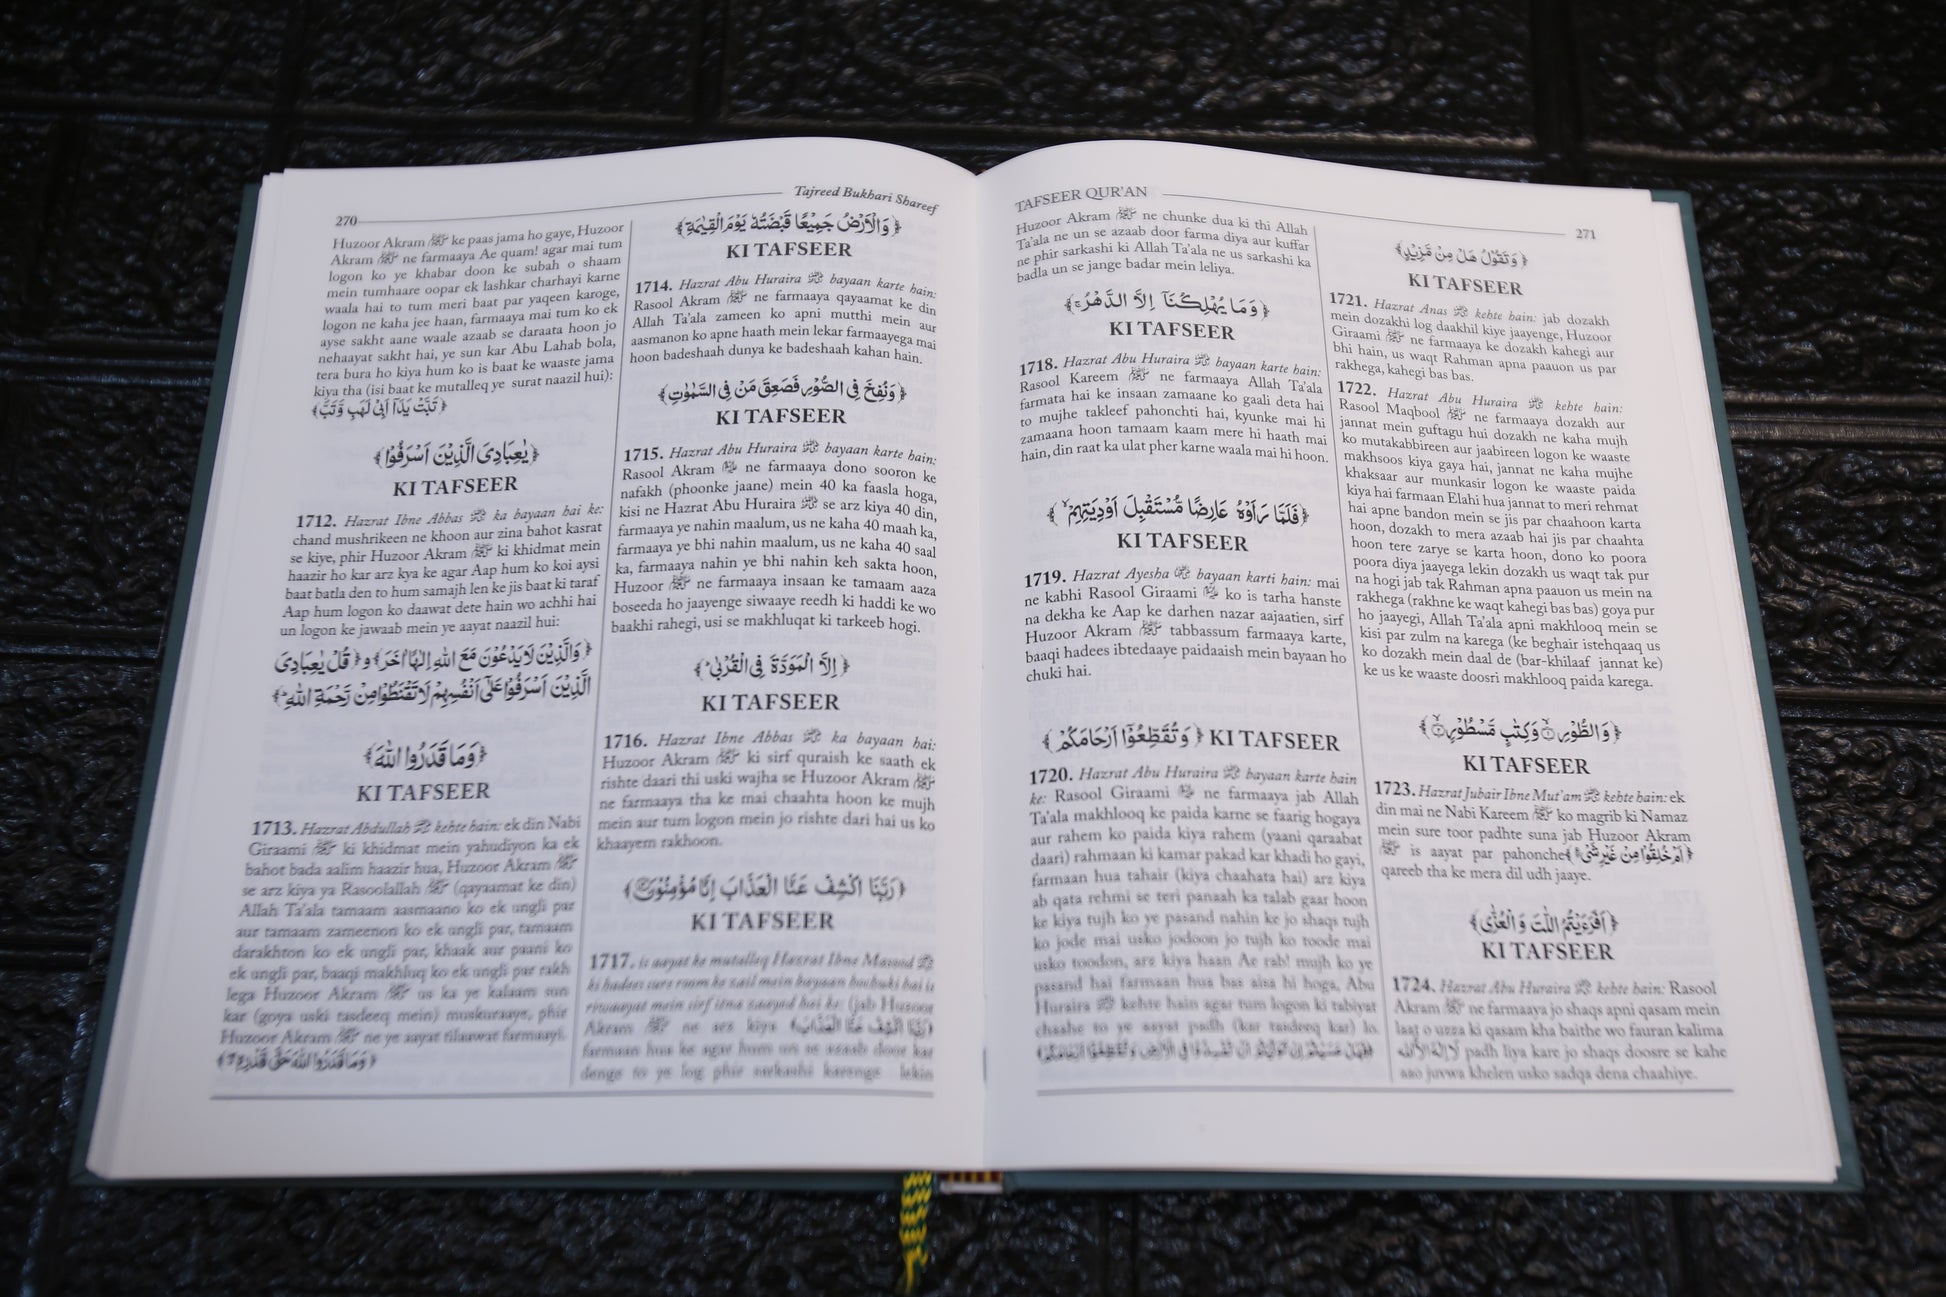 270
Tajreed Bukhari Shareef
Huzoor Akram ﷺ ke paas jama ho gaye, Huzoor
Akram ﷺ ne farmaaya Ae quam! agar mai tum
logon ko ye khabar doon ke subah o shaam
mein tumhaare oopar ek lashkar charhayi karne
waala hai to tum meri baat par yaqeen karoge,
logon ne kaha jee haan, farmaaya mai tum ko ek
ayse sakht aane waale azaab se daraata hoon jo
nehaayat sakht hai, ye sun kar Abu Lahab bola,
tera bura ho kiya hum ko is baat ke waaste jama
kiya tha (isi baat ke mutalleq ye surat naazil hui):
﴿تَبَّتْ يَدَآ اَبِيْ لَهَبٍ وَّتَبَّ﴾
﴿يٰعِبَادِىَ الَّذِيْنَ اَسْرَفُوْا﴾
KI TAFSEER
1712. Hazrat Ibne Abbas ka bayaan hai ke:
chand mushrikeen ne khoon aur zina bahot kasrat
se kiye, phir Huzoor Akram ﷺ ki khidmat mein
haazir ho kar arz kya ke agar Aap hum ko koi aysi
baat batla den to hum samajh len ke jis baat ki taraf
Aap hum logon ko daawat dete hain wo achhi hai
un logon ke jawaab mein ye aayat naazil hui:
﴿وَالَّذِيْنَ لَا يَدْعُوْنَ مَعَ اللّٰهِ اِلٰهًا اٰخَرَ﴾ و ﴿قُلْ يٰعِبَادِىَ
الَّذِيْنَ اَسْرَفُوْا عَلٰٓى اَنْفُسِهِمْ لَا تَقْنَطُوْا مِنْ رَّحْمَةِ اللّٰهِ ؕ﴾
﴿وَمَا قَدَرُوا اللّٰهَ﴾
KI TAFSEER
1713. Hazrat Abdullah kehte hain: ek din Nabi
Giraami ﷺ ki khidmat mein yahudiyon ka ek
bahot bada aalim haazir hua, Huzoor Akram ﷺ
se arz kiya ya Rasoolallah ﷺ (qayaamat ke din)
Allah Ta'ala tamaam aasmaano ko ek ungli par
aur tamaam zameenon ko ek ungli par, tamaam
darakhton ko ek ungli par, khaak aur paani ko
ek ungli par, baaqi makhluq ko ek ungli par rakh
lega Huzoor Akram ﷺ us ka ye kalaam sun
kar (goya uski tasdeeq mein) muskuraaye, phir
Huzoor Akram ﷺ ne ye aayat tilaawat farmaayi.
﴿وَمَا قَدَرُوا اللّٰهَ حَقَّ قَدْرِهٖ﴾
﴿وَالْاَرْضُ جَمِيْعًا قَبْضَتُهٗ يَوْمَ الْقِيٰمَةِ﴾
KI TAFSEER
1714. Hazrat Abu Huraira bayaan karte hain:
Rasool Akram ﷺ ne farmaaya qayaamat ke din
Allah Ta'ala zameen ko apni mutthi mein aur
aasmanon ko apne haath mein lekar farmaayega mai
hoon badeshaah dunya ke badeshaah kahan hain.
﴿وَنُفِخَ فِى الصُّوْرِ فَصَعِقَ مَنْ فِى السَّمٰوٰتِ﴾
KI TAFSEER
1715. Hazrat Abu Huraira bayaan karte hain:
Rasool Akram ﷺ ne farmaaya dono sooron ke
nafakh (phoonke jaane) mein 40 ka faasla hoga,
kisi ne Hazrat Abu Huraira se arz kiya 40 din,
farmaaya ye nahin maalum, us ne kaha 40 maah ka,
farmaaya ye bhi nahin maalum, us ne kaha 40 saal
ka, farmaaya nahin ye bhi nahin keh sakta hoon,
Huzoor ﷺ ne farmaaya insaan ke tamaam aaza
boseeda ho jaayenge siwaaye reedh ki haddi ke wo
baakhi rahegi, usi se makhluqat ki tarkeeb hogi.
﴿اِلَّا الْمَوَدَّةَ فِى الْقُرْبٰى ؕ﴾
KI TAFSEER
1716. Hazrat Ibne Abbas ka bayaan hai:
Huzoor Akram ﷺ ki sirf quraish ke saath ek
rishte daari thi uski wajha se Huzoor Akram ﷺ
ne farmaaya tha ke mai chaahta hoon ke mujh
mein aur tum logon mein jo rishte dari hai us ko
khaayem rakhoon.
﴿رَبَّنَا اكْشِفْ عَنَّا الْعَذَابَ اِنَّا مُؤْمِنُوْنَ﴾
KI TAFSEER
1717. is aayat ke mutalleq Hazrat Ibne Masood
ki hadees sure room ke zail mein bayaan hochuki hai is
riwaayat mein sirf itna zaayad hai ke: (jab Huzoor
Akram ﷺ ne arz kiya ﴿رَبَّنَا اكْشِفْ عَنَّا الْعَذَابَ﴾
farmaan hua ke agar hum un se azaab door kar
denge to ye log phir sarkashi karenge lekin
TAFSEER QUR'AN
271
Huzoor Akram ﷺ ne chunke dua ki thi Allah
Ta'ala ne un se azaab door farma diya aur kuffar
ne phir sarkashi ki Allah Ta'ala ne us sarkashi ka
badla un se jange badar mein leliya.
﴿وَمَا يُهْلِكُنَآ اِلَّا الدَّهْرُ ۚ﴾
KI TAFSEER
1718. Hazrat Abu Huraira bayaan karte hain:
Rasool Kareem ﷺ ne farmaaya Allah Ta'ala
farmata hai ke insaan zamaane ko gaali deta hai
to mujhe takleef pahonchti hai, kyunke mai hi
zamaana hoon tamaam kaam mere hi haath mai
hain, din raat ka ulat pher karne waala mai hi hoon.
﴿فَلَمَّا رَاَوْهُ عَارِضًا مُّسْتَقْبِلَ اَوْدِيَتِهِمْ ۙ﴾
KI TAFSEER
1719. Hazrat Ayesha bayaan karti hain: mai
ne kabhi Rasool Giraami ﷺ ko is tarha hanste
na dekha ke Aap ke darhen nazar aajaatien, sirf
Huzoor Akram ﷺ tabbassum farmaaya karte,
baaqi hadees ibtedaaye paidaaish mein bayaan ho
chuki hai.
﴿وَتُقَطِّعُوْٓا اَرْحَامَكُمْ﴾ KI TAFSEER
1720. Hazrat Abu Huraira bayaan karte hain
ke: Rasool Giraami ﷺ ne farmaaya jab Allah
Ta'ala makhlooq ke paida karne se faarig hogaya
aur rahem ko paida kiya rahem (yaani qaraabat
daari) rahmaan ki kamar pakad kar khadi ho gayi,
farmaan hua tahair (kiya chaahata hai) arz kiya
ab qata rehmi se teri panaah ka talab gaar hoon
ke kiya tujh ko ye pasand nahin ke jo shaqs tujh
ko jode mai usko jodoon jo tujh ko toode mai
usko toodon, arz kiya haan Ae rab! mujh ko ye
pasand hai farmaan hua bas aisa hi hoga, Abu
Huraira kehte hain agar tum logon ki tabiyat
chaahe to ye aayat padh (kar tasdeeq kar) lo.
﴿فَهَلْ عَسَيْتُمْ اِنْ تَوَلَّيْتُمْ اَنْ تُفْسِدُوْا فِى الْاَرْضِ وَتُقَطِّعُوْٓا اَرْحَامَكُمْ﴾
﴿وَتَقُوْلُ هَلْ مِنْ مَّزِيْدٍ﴾
KI TAFSEER
1721. Hazrat Anas kehte hain: jab dozakh
mein dozakhi log daakhil kiye jaayenge, Huzoor
Giraami ﷺ ne farmaaya ke dozakh kahegi aur
bhi hain, us waqt Rahman apna paauon us par
rakhega, kahegi bas bas.
1722. Hazrat Abu Huraira kehte hain:
Rasool Maqbool ﷺ ne farmaaya dozakh aur
jannat mein guftagu hui dozakh ne kaha mujh
ko mutakabbireen aur jaabireen logon ke waaste
makhsoos kiya gaya hai, jannat ne kaha mujhe
khaksaar aur munkasir logon ke waaste paida
kiya hai farmaan Elahi hua jannat to meri rehmat
hai apne bandon mein se jis par chaahoon karta
hoon, dozakh to mera azaab hai jis par chaahta
hoon tere zarye se karta hoon, dono ko poora
poora diya jaayega lekin dozakh us waqt tak pur
na hogi jab tak Rahman apna paauon us mein na
rakhega (rakhne ke waqt kahegi bas bas) goya pur
ho jaayegi, Allah Ta'ala apni makhlooq mein se
kisi par zulm na karega (ke beghair istehqaaq us
ko dozakh mein daal de (bar-khilaaf jannat ke)
ke us ke waaste doosri makhlooq paida karega.
﴿وَالطُّوْرِ ۙ وَكِتٰبٍ مَّسْطُوْرٍ ۙ﴾
KI TAFSEER
1723. Hazrat Jubair Ibne Mut'am kehte hain: ek
din mai ne Nabi Kareem ﷺ ko magrib ki Namaz
mein sure toor padhte suna jab Huzoor Akram
ﷺ is aayat par pahonche ﴿اَمْ خُلِقُوْا مِنْ غَيْرِ شَىْءٍ﴾
qareeb tha ke mera dil udh jaaye.
﴿اَفَرَءَيْتُمُ اللّٰتَ وَالْعُزّٰى﴾
KI TAFSEER
1724. Hazrat Abu Huraira kehte hain: Rasool
Akram ﷺ ne farmaaya jo shaqs apni qasam mein
laat o uzza ki qasam kha baithe wo fauran kalima
لَا اِلٰهَ اِلَّا اللّٰه padh liya kare jo shaqs doosre se kahe
aao juvwa khelen usko sadqa dena chaahiye.